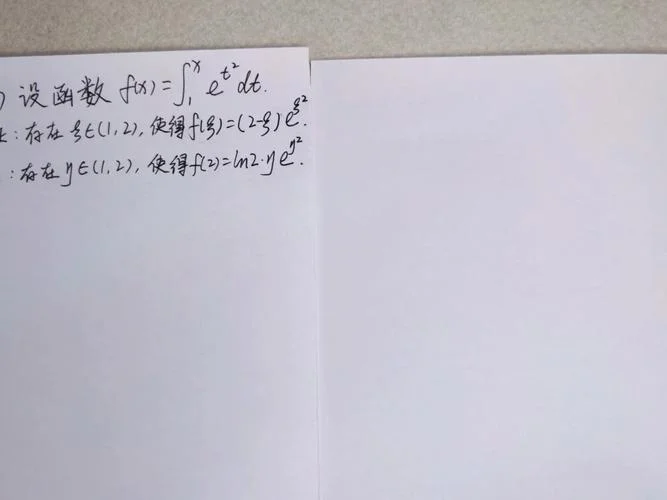 ) 设函数 f(x)=∫₁ˣ e^{t²}dt.
: 存在 ξ∈(1,2), 使得f(ξ)=(2-ξ)e^{ξ²}.
: 存在 η∈(1,2), 使得f(2)=ln2·ηe^{η²}.